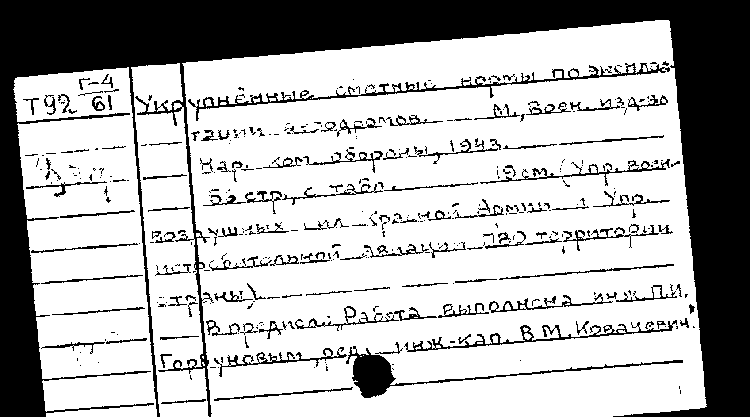 Г-4
Т92 61 Укрупнённые сметные нормы по эксплоа-
тации аэродромов. М., Воен. изд-во
Нар. ком. обороны, 1943.
стр., с табл. 19 см. (Упр. воен-
воздушных сил Красной Армии и Упр.
истребительной авиации ПВО территории
страны).
В предисл.: Работа выполнена инж. П.И.
Горбуновым, ред. инж.-кап. В.М. Ковачевич.